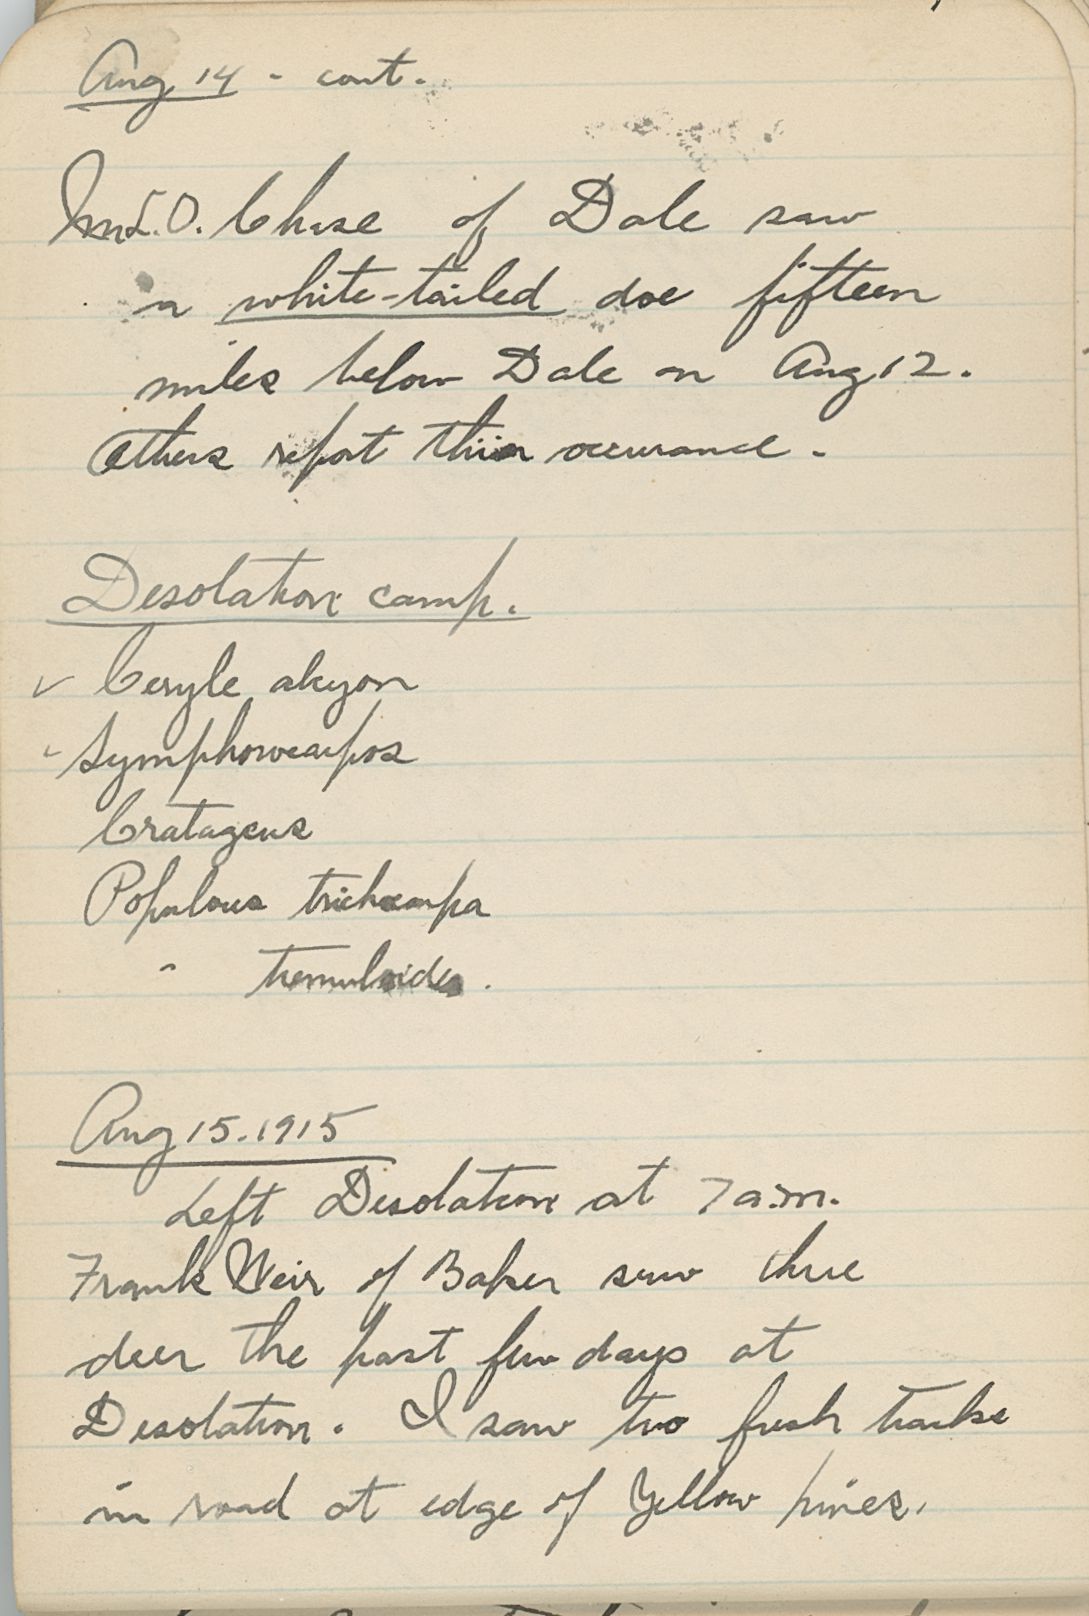 Aug 14 - cont.
Mr L.O. Chase of Dale saw
a white-tailed doe fifteen
miles below Dale on Aug 12.
Others report their occurance.
Desolation camp.
✓ Ceryle alcyon
Symphoricarpos
Cratageus
Populous trichocarpa
" tremuloides.
Aug 15. 1915
Left Desolation at 7 a.m.
Frank Weir of Baker saw three
deer the past few days at
Desolation. I saw two fresh tracks
in road at edge of Yellow pines.